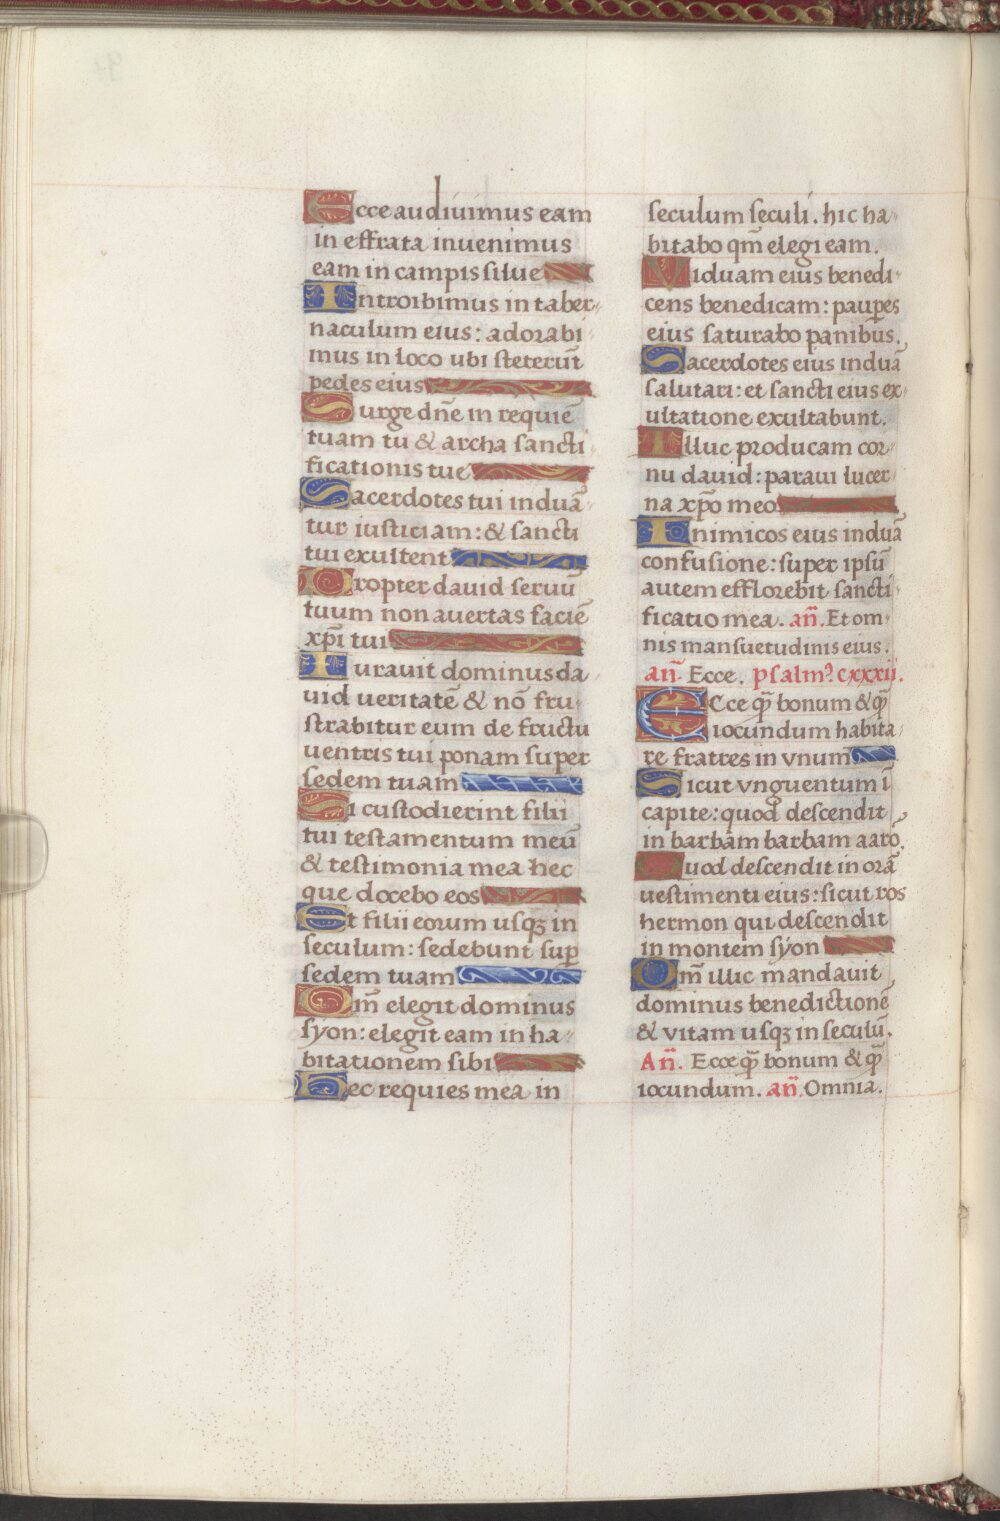 Ecce audivimus eam
in effrata invenimus
eam in campis silue
Introibimus in taber-
naculum eius: adorabi-
mus in loco ubi steterūt
pedes eius
Surge dñe in requiē
tuam tu & archa sancti-
ficationis tue
Sacerdotes tui induā-
tur iusticiam: & sancti
tui exultent
Propter david seruū
tuum non avertas faciē
xp̄i tui
Iuravit dominus da-
uid veritatē & nō fru-
strabitur eum de fructu
uentris tui ponam super
sedem tuam
Si custodierint filii
tui testamentum meū
& testimonia mea hec
que docebo eos
Et filii eorum usqꝫ in
seculum: sedebunt sup̄
sedem tuam
Qm̄ elegit dominus
syon: elegit eam in ha-
bitationem sibi
Hec requies mea in
seculum seculi. hic ha-
bitabo qm̄ elegi eam.
Viduam eius benedi-
cens benedicam: paup̱es
eius saturabo panibus.
Sacerdotes eius induā
salutari: et sancti eius ex-
ultatione exultabunt.
Illuc producam cor-
nu david: paraui lucer-
na xp̄o meo
Inimicos eius induā
confusione: super ipsū
autem efflorebit sancti-
ficatio mea. añ. Et om-
nis mansuetudinis eius.
añ Ecce. psalmꝰ. cxxxii.
Ecce q̄ bonum & q̄
iocundum habita-
re fratres in vnum
Sicut vnguentum ī
capite: quod descendit
in barbam barbam aarō.
Quod descendit in orā
uestimenti eius: sicut ros
hermon qui descendit
in montem syon
Qm̄ illic mandavit
dominus benedictionē
& vitam usqꝫ in seculū.
Añ. Ecce q̄ bonum & q̄
iocundum. añ. Omnia.